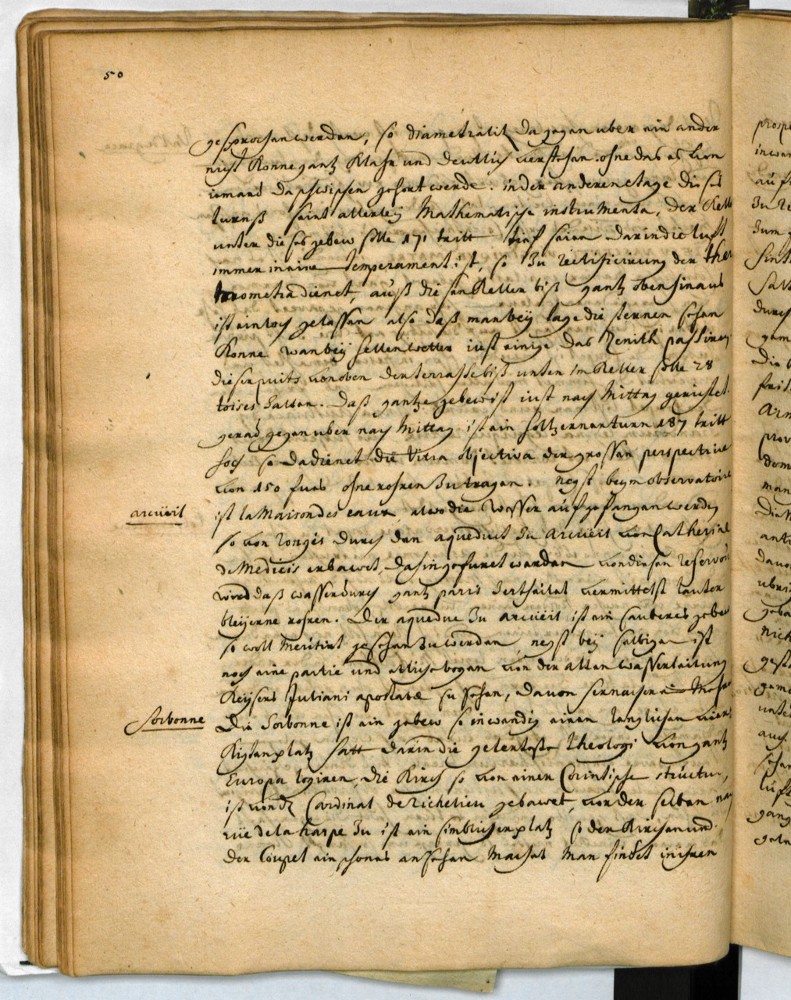 50
gesprochen werden, so diametralit. da gegen uber ein ander
nicht konne gantz klahr und deutlich verstehen ohne das es von
iemand dazwischen gehort werde. in der anderen etage dieses
turns seint allerley Mathematische instrumenta, der Kell
unter dieses gebew solle 171 tritt tief seien darin die luft
immer in eine temperament ist, so zu rectificirung der ther
mometra dienet, auß diesen Keller biß gantz oben hinaus
ist ein loch gelassen also daß man bey tage die sternen sehen
konne wan bey hellen wetter iust einige das Zenith passiren
dieser puits von oben der terrasse biß unten im Keller solle 28
toises halten. Daß gantze gebew ist iust nach Mittag gerichtet.
gerad gegen uber nach Mittag ist ein holtzernen turn 187 tritt
hoch so da dienet die vitra objectiva der grossen perspective
von 150 fues ohne rohren zu tragen. negst beym observatoire
arcüeil
ist la Maison des eaux, alwo die wasser aufgefangen werden
so von rongis durch den aqueduct zu arcüeil von Catherine
de Medicis erbawet, dahin gefuret werden von diesen reservoir
wird daß wasser durch gantz paris vertheilet vermittelst lauter
bleyerne rohren. Der aqueduc zu arcüeil ist ein sauberes gebew
so woll meritirt gesehen zu werden negst bey selbigen ist
noch eine partie und etliche bogen von der alten wasserleitung
Keysers Juliani apostatæ zu sehen, davon hernacher Mehr
Sorbonne
Die Sorbonne ist ein gebew so inwendig einen lenglichen vier
kigten platz hatt darin die gelerteste theologi von gantz
Europa logiren, die Kirch so von einer Corintische structur,
ist von dem Cardinal de Richelieu gebawet, vor der selben nach
rüe de la harpe zu ist ein platz so der Kirchen und
der Coupel ein schones ansehen machet Man findet in ihren